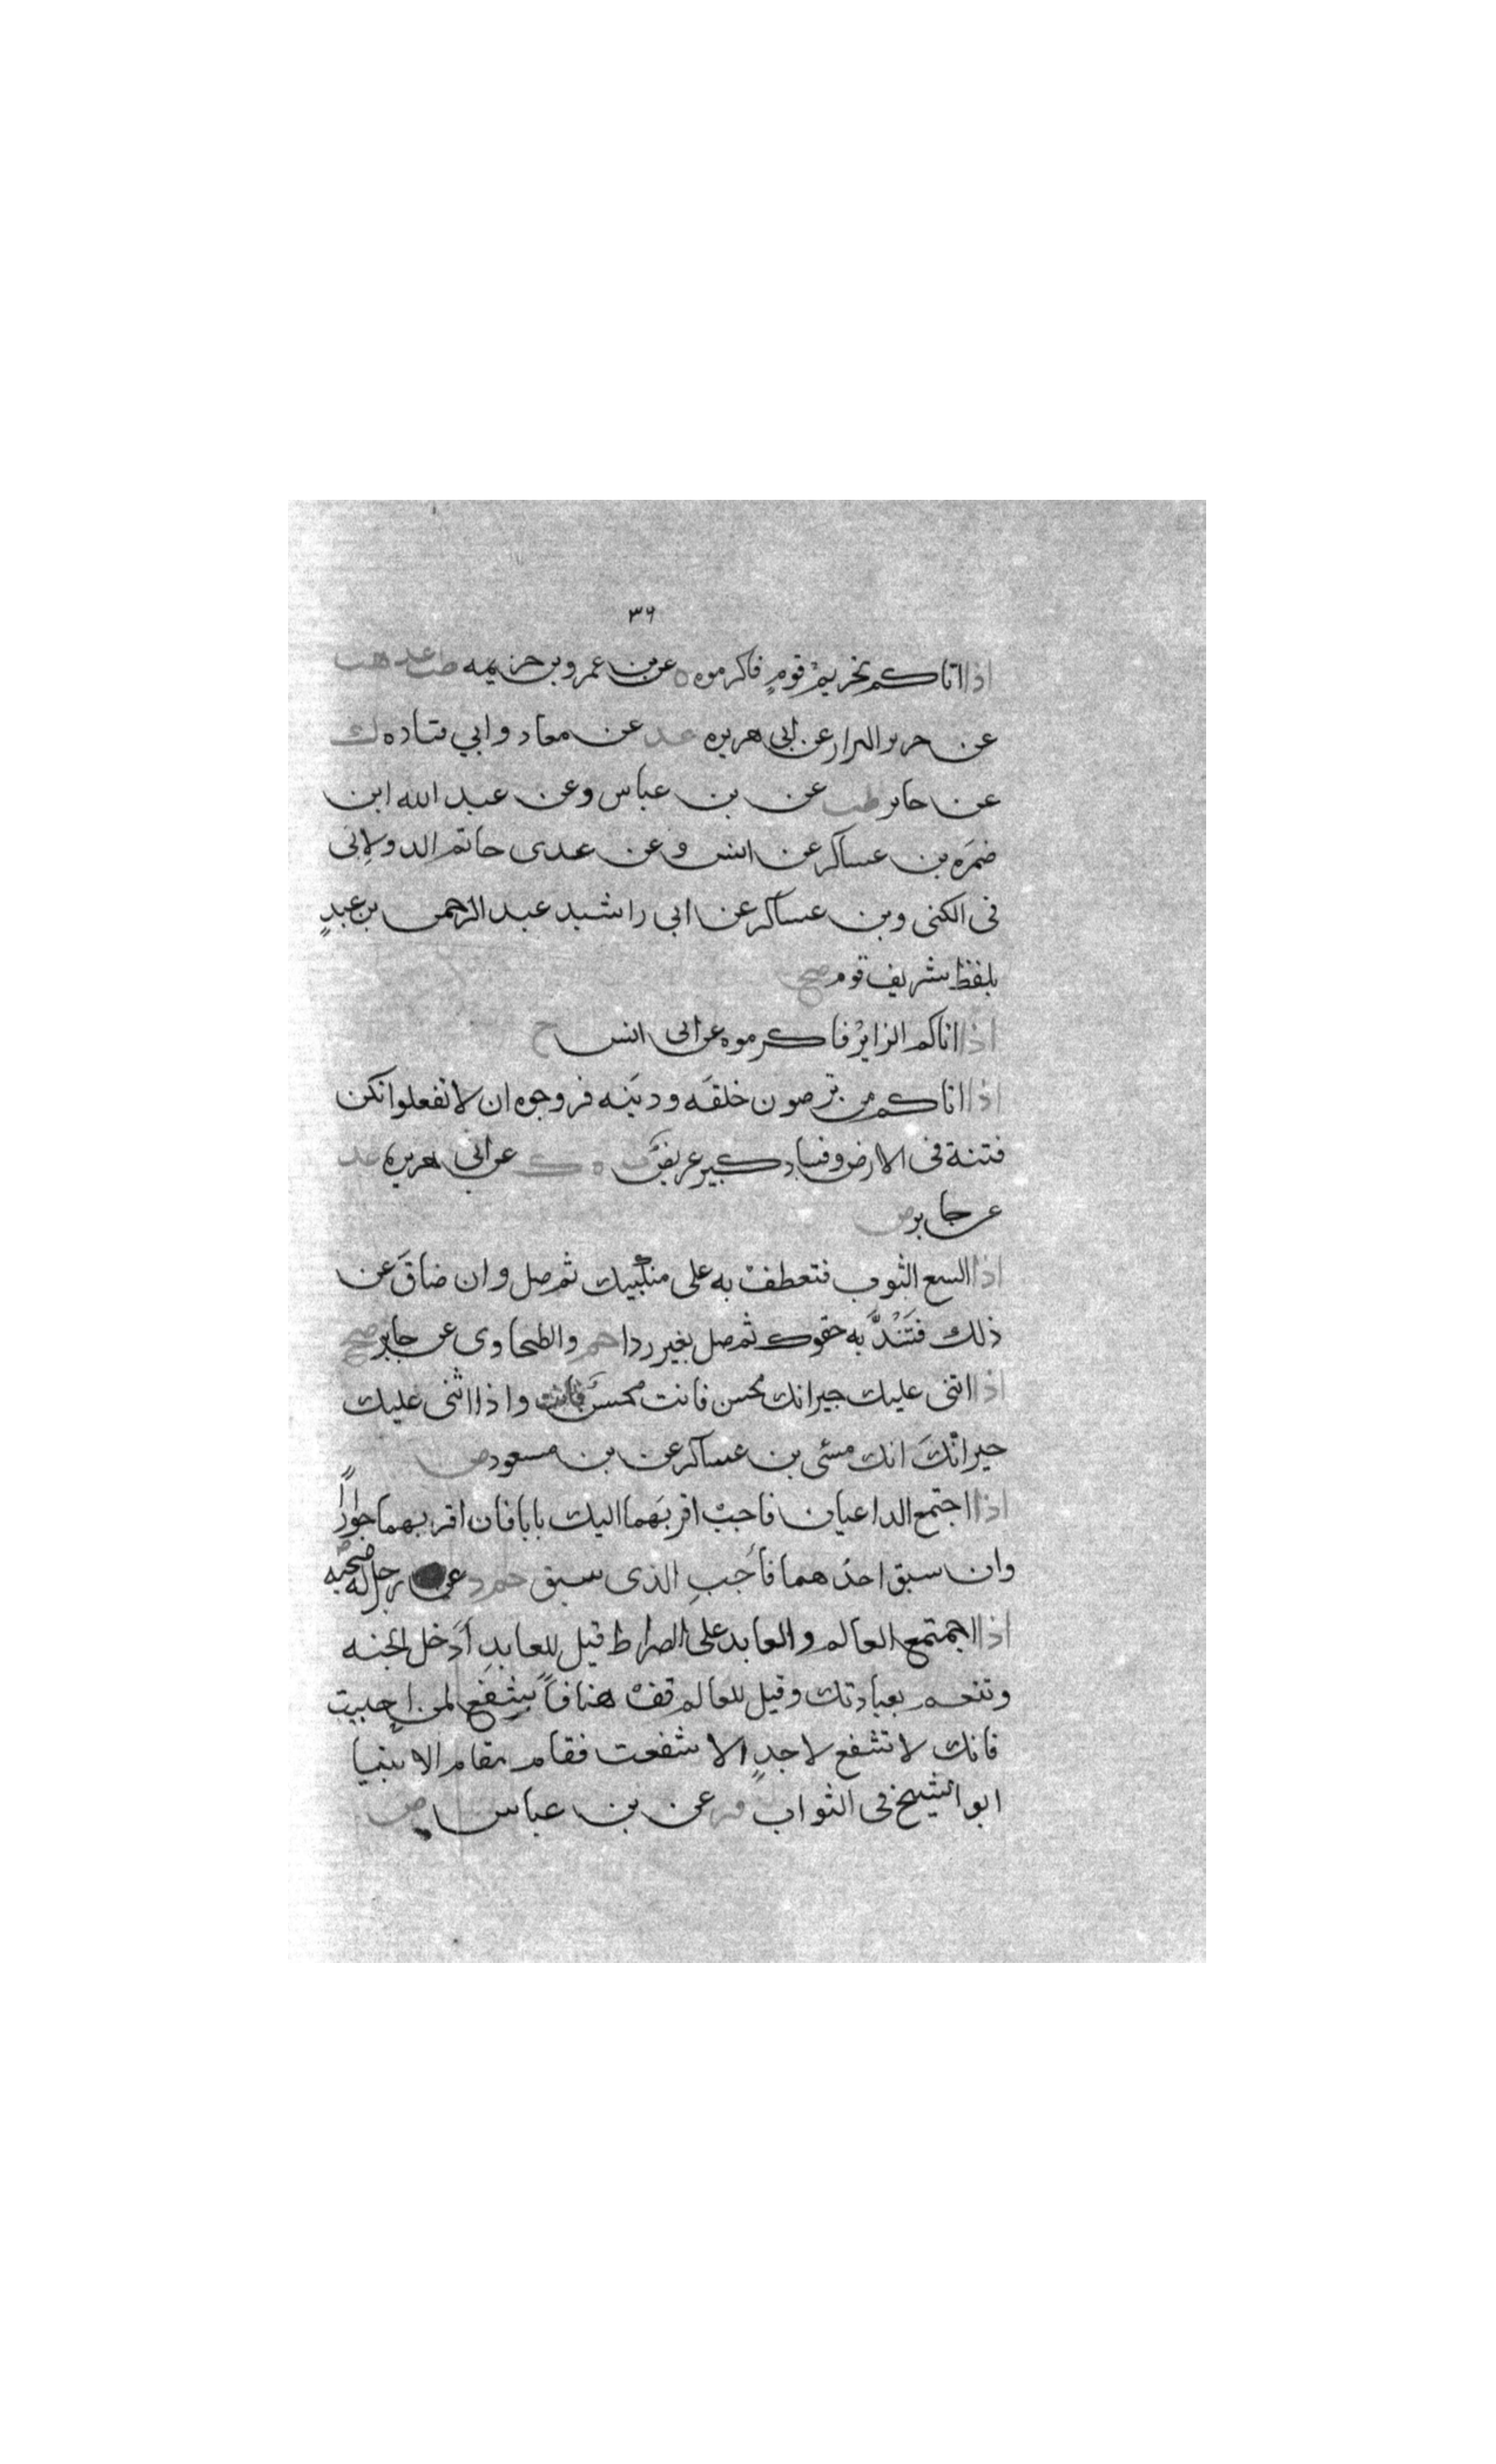 ٣٦
اذا اتاكم كريم قوم فاكرموه ه عن بن عمرو بن خزيمه طب عد هب
عن جرير البزار عن ابى هريره عد عن معاد وابي قتاده ك
عن جابر طب عن بن عباس وعن عبد الله ابن
ضمره بن عساكر عن انس وعن عدى حاتم الدولابى
فى الكنى وبن عساكر عن ابى راشد عبد الرحمن بن عبد
بلفظ شريف قوم صح
اذا اتاكم الزاير فاكرموه عن انس ح
اذا اتاكم من ترضون خلقه ودينه فزوجوه ان لا تفعلوا تكن
فتنة فى الارض وفساد كبير عريض ت ه ك عن ابى هريره عد
عن جابر ض
اذا اتسع الثوب فتعطف به على منكبيك ثم صل وان ضاق عن
ذلك فتشد به حقوك ثم صل بغير ردا حم والطحاوى عن جابر صح
اذا اثنى عليك جيرانك محسن فانت محسن واذا اثنى عليك
جيرانك انك مسئى بن عساكر عن بن مسعود ض
اذا اجتمع الداعيان فاجب اقربهما اليك بابا فان اقربهما جوارا
وان سبق احدهما فاجب الذى سبق حم د عن رجل له صحبه
اذا اجمتمع العالم والعابد على الصراط قيل للعابد ادخل الجنه
وتنعم بعبادتك وقيل للعالم قف هنا فاشفع لمن احببت
فانك لا تشفع لاحد الا شفعت فقام مقام الانبيا
ابو الشيخ فى الثواب فر عن بن عباس ض